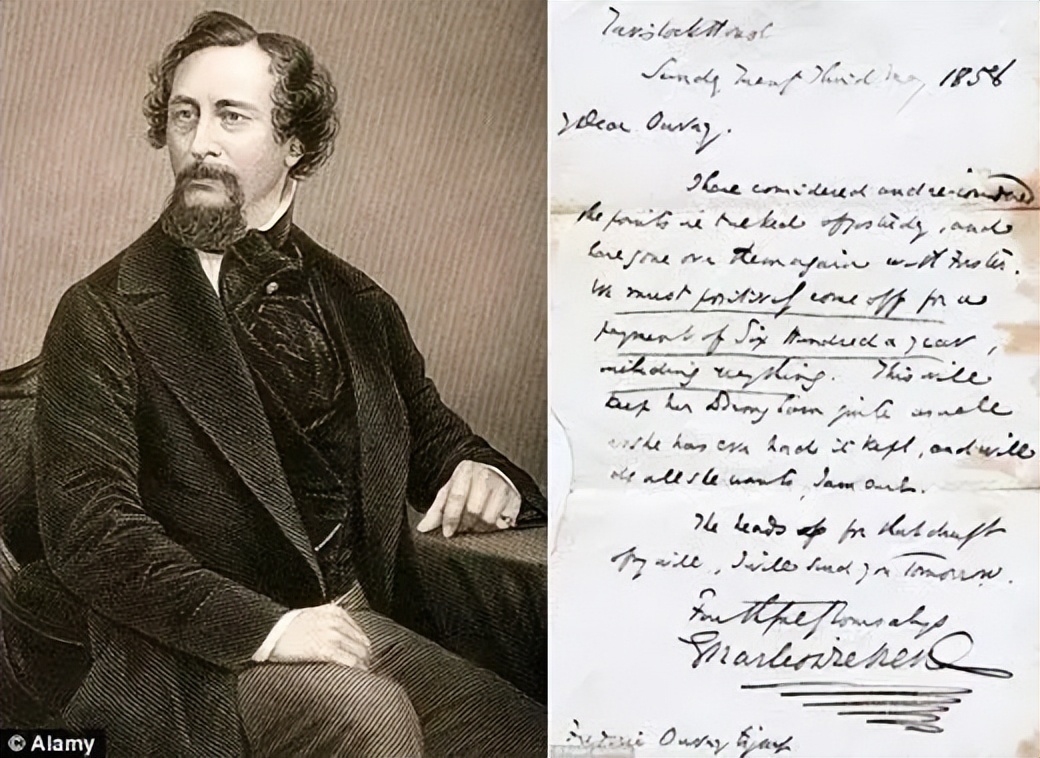 Tavistock House
Sunday Twenty Third May 1858
Dear Ouvry.
I have considered and re-considered
the points we talked of yesterday, and
have gone over them again with Forster.
We must positively come off for a
payment of Six Hundred a year,
including everything. This will
keep her Brougham quite as well
as she has ever had it kept, and will
do all she wants, I am
The heads for that draft
of my will, I will send you Tomorrow.
Faithfully Yours always
Charles Dickens
Frederic Ouvry Esquire
© Alamy